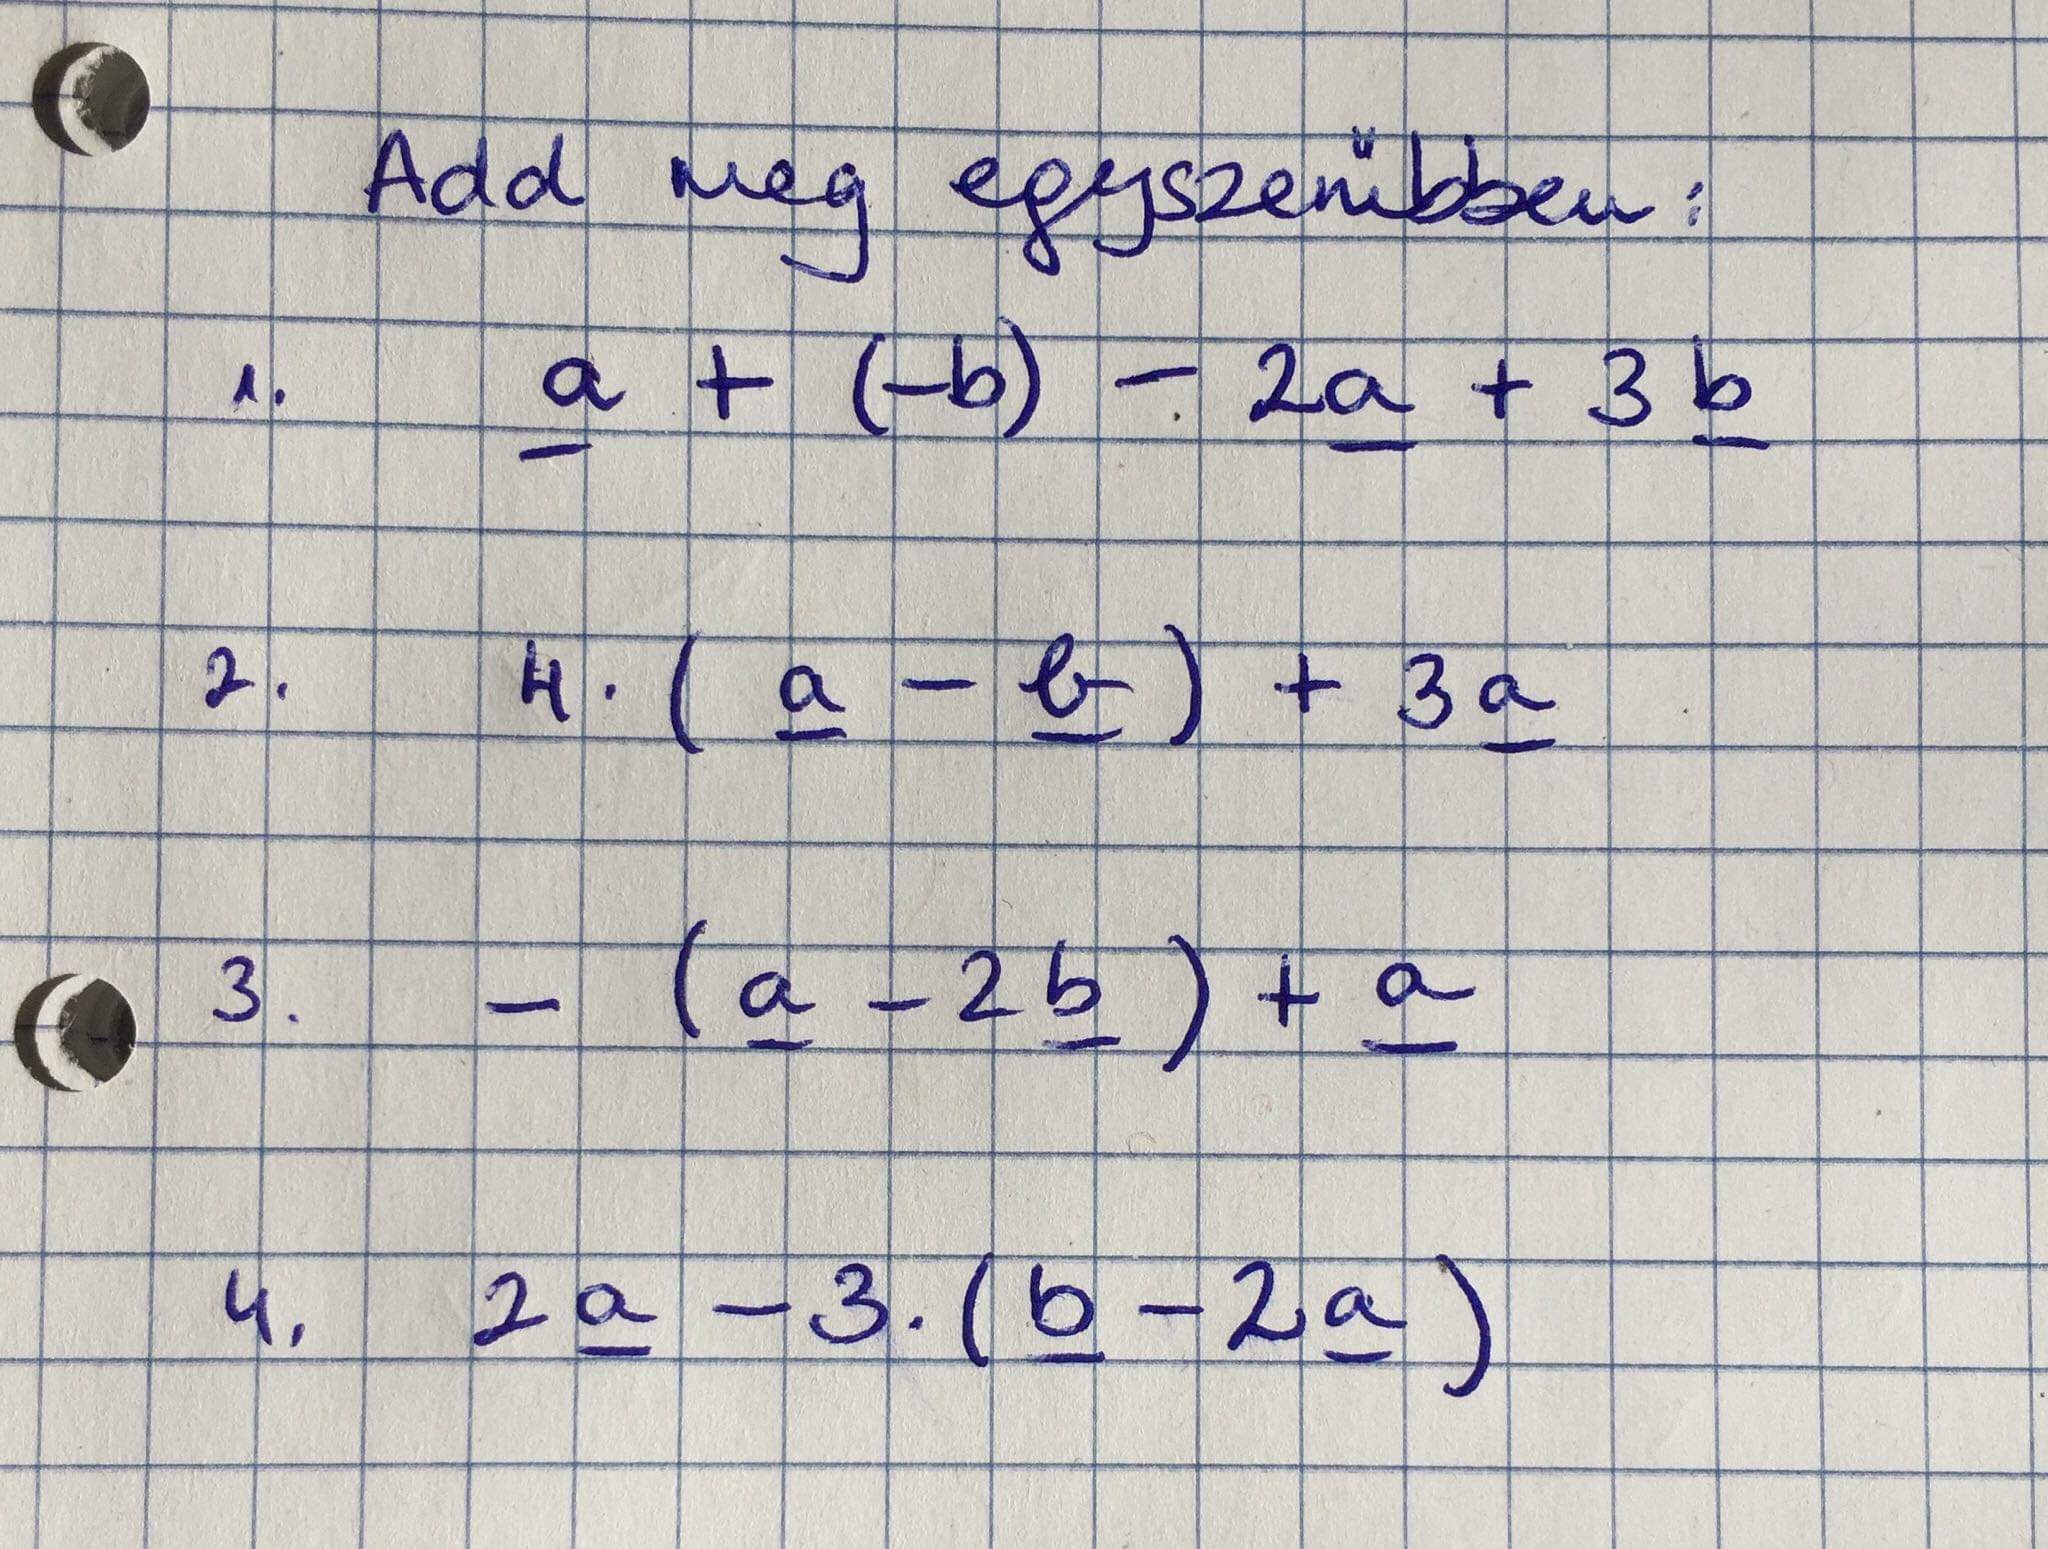 Add meg egyszerűbben:
1. a̲ + (-b) - 2a̲ + 3b̲
2. 4·(a̲ - b̲) + 3a̲
3. - (a̲ - 2b̲) + a̲
4. 2a̲ - 3·(b̲ - 2a̲)